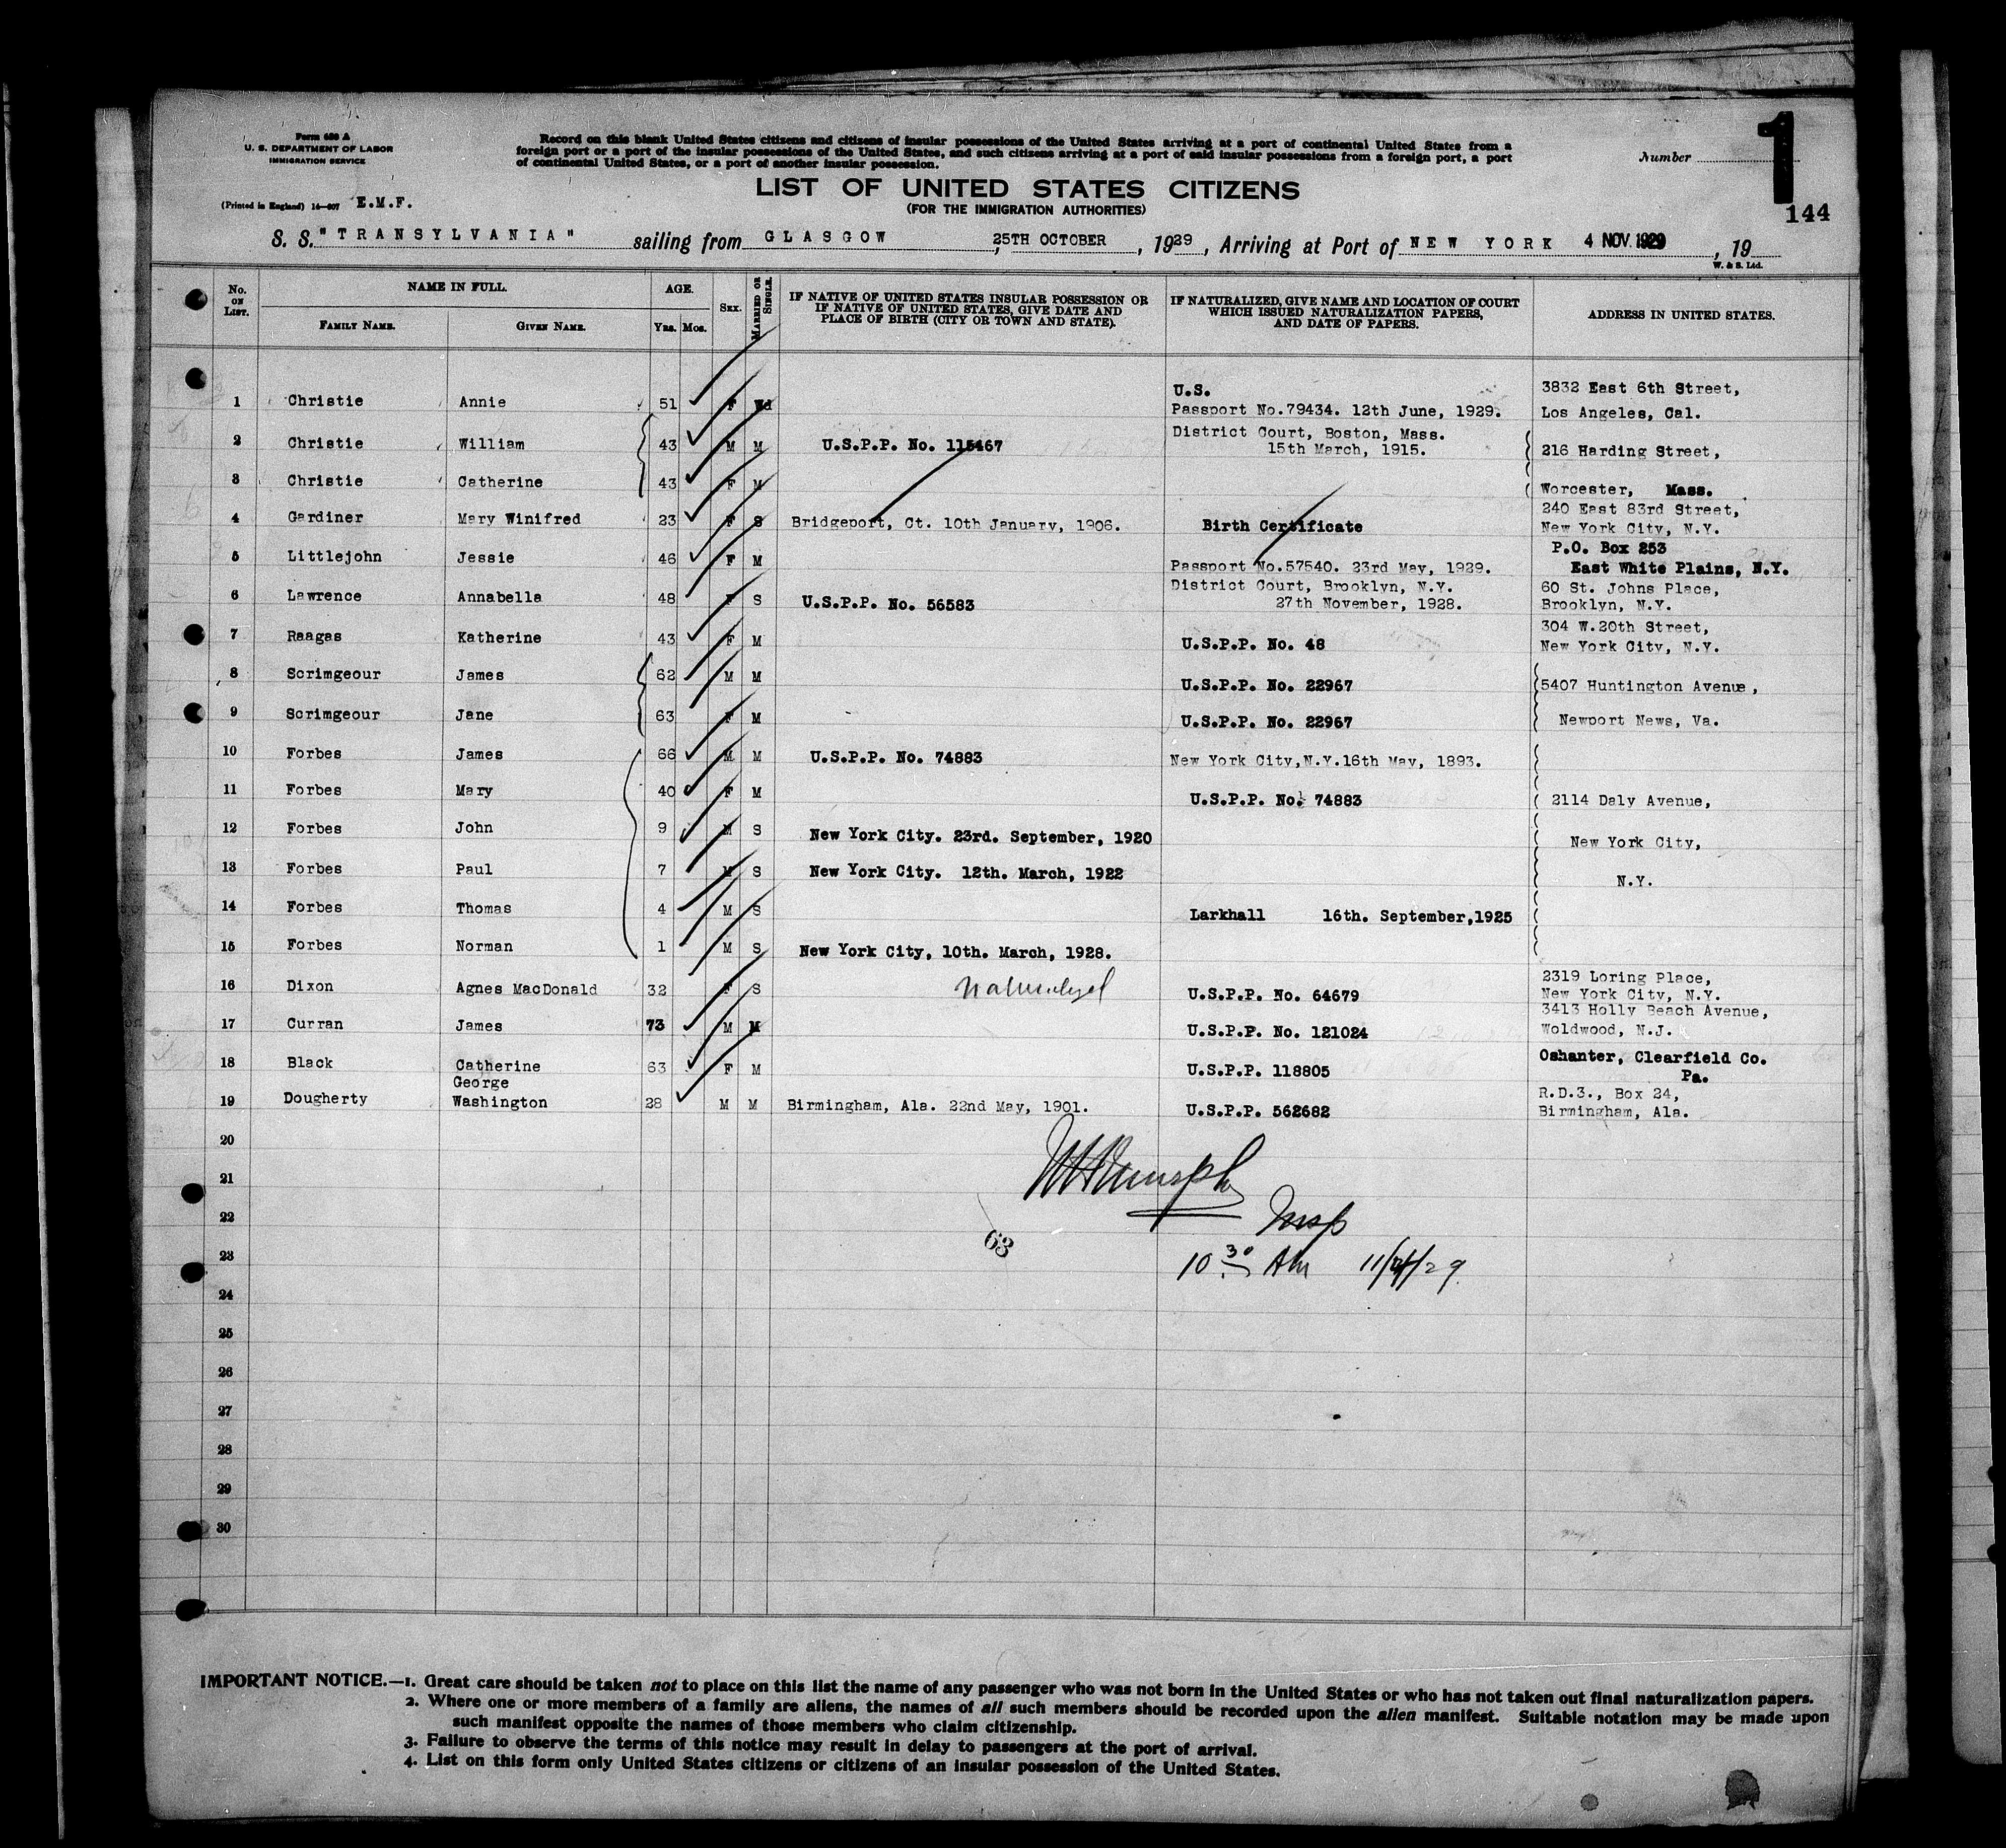 Form 630 A
U. S. DEPARTMENT OF LABOR
IMMIGRATION SERVICE
(Printed in England) 14—607 E.M.F.
Record on this blank United States citizens and citizens of insular possessions of the United States arriving at a port of continental United States from a
foreign port or a port of the insular possessions of the United States, and such citizens arriving at a port of said insular possessions from a foreign port, a port
of continental United States, or a port of another insular possession.
Number 1
144
LIST OF UNITED STATES CITIZENS
(FOR THE IMMIGRATION AUTHORITIES)
S. S. "TRANSYLVANIA" sailing from GLASGOW, 25TH OCTOBER, 1929, Arriving at Port of NEW YORK 4 NOV. 1929, 19
W. & S. Ltd.
No. ON LIST. NAME IN FULL. FAMILY NAME. GIVEN NAME. AGE. Yrs. Mos. SEX. MARRIED OR SINGLE. IF NATIVE OF UNITED STATES INSULAR POSSESSION OR IF NATIVE OF UNITED STATES, GIVE DATE AND PLACE OF BIRTH (CITY OR TOWN AND STATE). IF NATURALIZED, GIVE NAME AND LOCATION OF COURT WHICH ISSUED NATURALIZATION PAPERS, AND DATE OF PAPERS. ADDRESS IN UNITED STATES.
1 Christie Annie 51 F Wd U.S. Passport No.79434. 12th June, 1929. 3832 East 6th Street, Los Angeles, Cal.
2 Christie William 43 M M U.S.P.P. No. 115467 District Court, Boston, Mass. 15th March, 1915. 216 Harding Street,
3 Christie Catherine 43 F M Worcester, Mass.
4 Gardiner Mary Winifred 23 F S Bridgeport, Ct. 10th January, 1906. Birth Certificate 240 East 83rd Street, New York City, N.Y.
5 Littlejohn Jessie 46 F M Passport No.57540. 23rd May, 1929. P.O. Box 253 East White Plains, N.Y.
6 Lawrence Annabella 48 F S U.S.P.P. No. 56583 District Court, Brooklyn, N.Y. 27th November, 1928. 60 St. Johns Place, Brooklyn, N.Y.
7 Raagas Katherine 43 F M U.S.P.P. No. 48 304 W.20th Street, New York City, N.Y.
8 Scrimgeour James 62 M M U.S.P.P. No. 22967 5407 Huntington Avenue,
9 Scrimgeour Jane 63 F M U.S.P.P. No. 22967 Newport News, Va.
10 Forbes James 66 M M U.S.P.P. No. 74883 New York City,N.Y.16th May, 1893.
11 Forbes Mary 40 F M U.S.P.P. No. 74883 2114 Daly Avenue,
12 Forbes John 9 M S New York City. 23rd. September, 1920 New York City,
13 Forbes Paul 7 M S New York City. 12th. March, 1922 N.Y.
14 Forbes Thomas 4 M S Larkhall 16th. September,1925
15 Forbes Norman 1 M S New York City, 10th. March, 1928.
16 Dixon Agnes MacDonald 32 F S Naturalized U.S.P.P. No. 64679 2319 Loring Place, New York City, N.Y.
17 Curran James 73 M M U.S.P.P. No. 121024 3413 Holly Beach Avenue, Woldwood, N.J.
18 Black Catherine 63 F M U.S.P.P. 118805 Oshanter, Clearfield Co. Pa.
19 Dougherty George Washington 28 M M Birmingham, Ala. 22nd May, 1901. U.S.P.P. 562682 R.D.3., Box 24, Birmingham, Ala.
20
21
22 Insp
63
23 10 30 AM 11/4/29
24
25
26
27
28
29
30
IMPORTANT NOTICE.—1. Great care should be taken not to place on this list the name of any passenger who was not born in the United States or who has not taken out final naturalization papers.
2. Where one or more members of a family are aliens, the names of all such members should be recorded upon the alien manifest. Suitable notation may be made upon
such manifest opposite the names of those members who claim citizenship.
3. Failure to observe the terms of this notice may result in delay to passengers at the port of arrival.
4. List on this form only United States citizens or citizens of an insular possession of the United States.